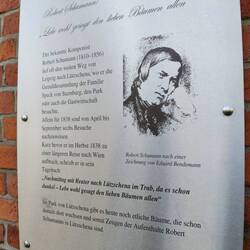 Robert Schumann:
„Lebe wohl gesagt den lieben Bäumen allen
Der bekannte Komponist
Robert Schumann (1810-1856)
lief oft den weiten Weg von
Leipzig nach Lützschena, wo er die
Gemäldesammlung der Familie
Speck von Sternburg, den Park
oder auch die Gastwirtschaft
besuchte.
Allein für 1838 sind von April bis
September sechs Besuche
nachzuweisen
Kurz bevor er im Herbst 1838 zu
einer längeren Reise nach Wien
aufbrach, schrieb er in sein
Tagebuch
„Nachmittag mit Reuter nach Lützschena im Trab, da es schon
dunkel – Lebe wohl gesagt den lieben Bäumen allen"
Im Park von Lützschena gibt es heute noch etliche Bäume, die schon
damals dort wuchsen und somit Zeugen der Aufenthalte Robert
Schumanns in Lützschena sind.
Robert Schumann nach einer
Zeichnung von Eduard Bendemann